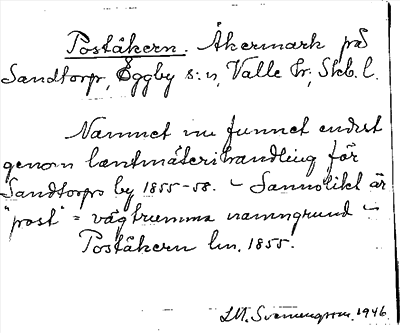 Postäkern. Åkermark på
Sandtorp, Eggby s:n, Valle hr, Skb. l.
Namnet nu funnet endast
genom lantmäterihandling för
Sandtorps by 1855-58. - Sannolikt är
"post" = vägtrumma namngrund -
Postäkern lm. 1855.
1946.